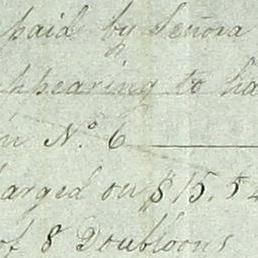 paid by Señora
appearing to ha
in N.º 6
harged on $15.54
of 8 Doubloons